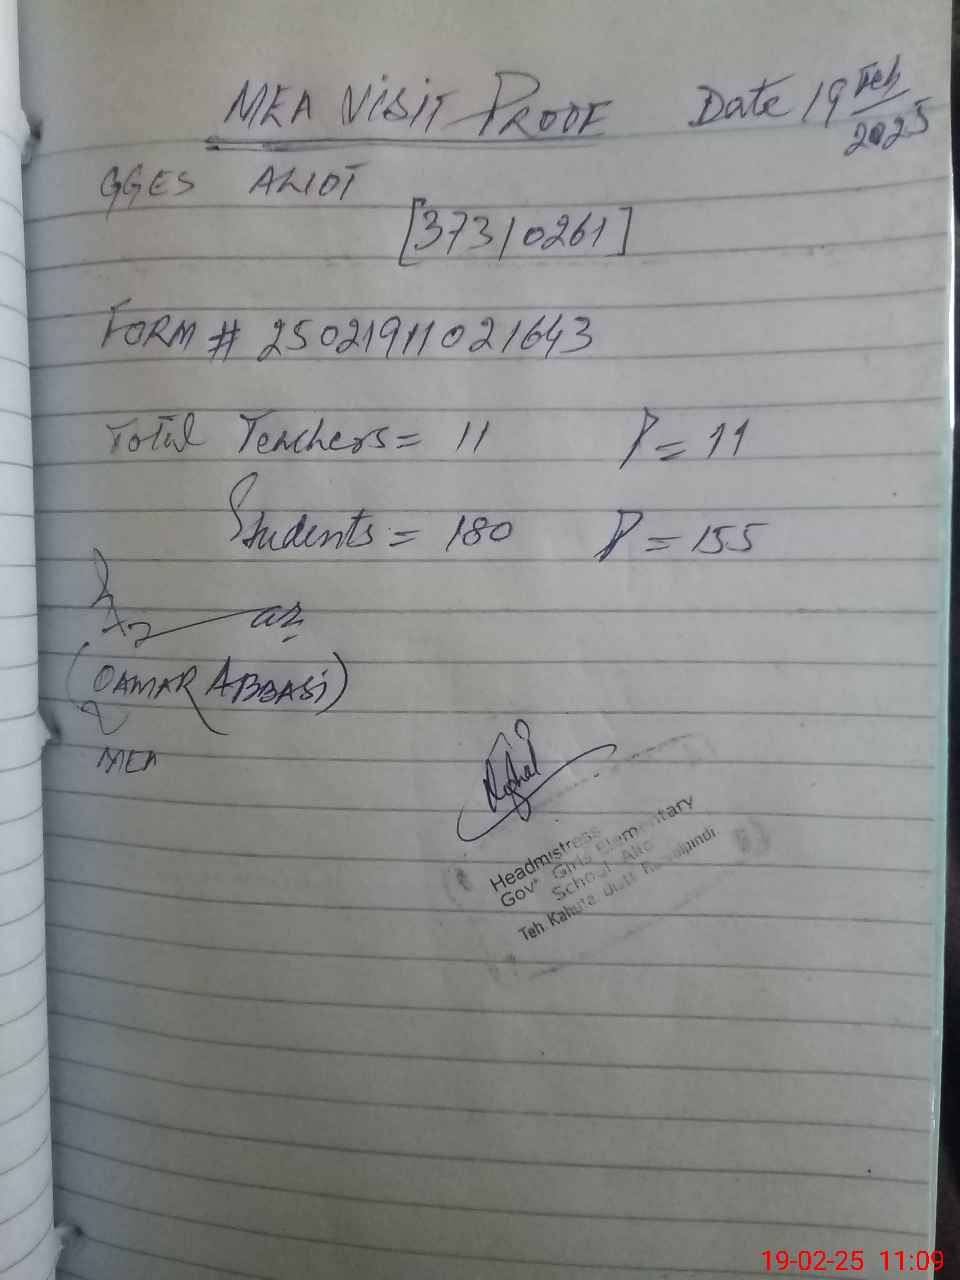 MEA VISIT PROOF Date 19 Feb 2025
GGES ALIOT
[37310261]
FORM # 25021911021643
Total Teachers = 11 P = 11
Students = 180 P = 155
(QAMAR ABBASI)
MEA
Headmistress
Govt Girls Elementary
School Aliot
Teh. Kahuta Distt Rawalpindi
19-02-25 11:09